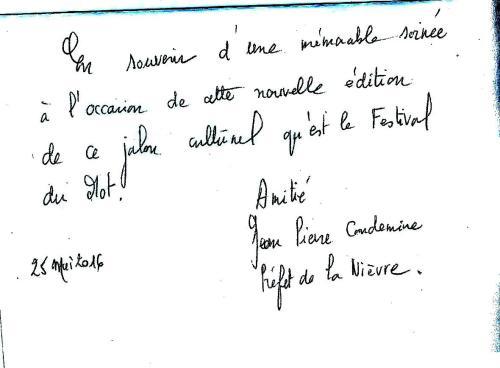 En souvenir d'une mémorable soirée
à l'occasion de cette nouvelle édition
de ce jalon culturel qu'est le Festival
du Mot.
Amitié
Jean Pierre Condemine
Préfet de la Nièvre.
25 Mai 2016